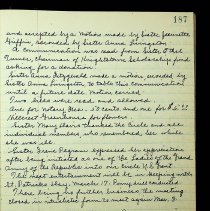 187
and accepted by a motion made by Sister Jeanette
seconded by Sister Anna Livingston
A communication was read from Sister
Turner, chairman of Scholarship fund
asking for a donation.
Sister Anna Fitzgerald made a motion seconded by
Sister Anna Livingston to table this communication
until a future date. Motion carried
Two bills were read and allowed.
One for Notary Seal 50 cents and one for
Hillcrest Greenhouse for flowers.
Sister Mary thanked the Circle and all
individual members, who remembered her while
she was ill.
Sister Irene Pegram expressed her appreciation
after being initiated as one of the Ladies of the Grand
Army of the Republic into our Circle
The next entertainment will be in keeping with
St. Patricks Day, March 17. Penny drill conducted
There being no further business the meeting
closed in ritualistic form to meet again Mar. 3.